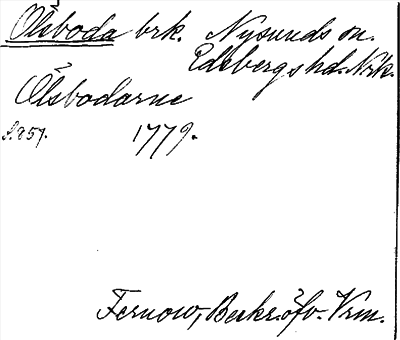 Ölsboda brk. Nysunds sn.
Edsbergs hd. Nrk.
Ölsbodarne
s. 857. 1779.
Fernow, Beskr. öfv. Vrm.